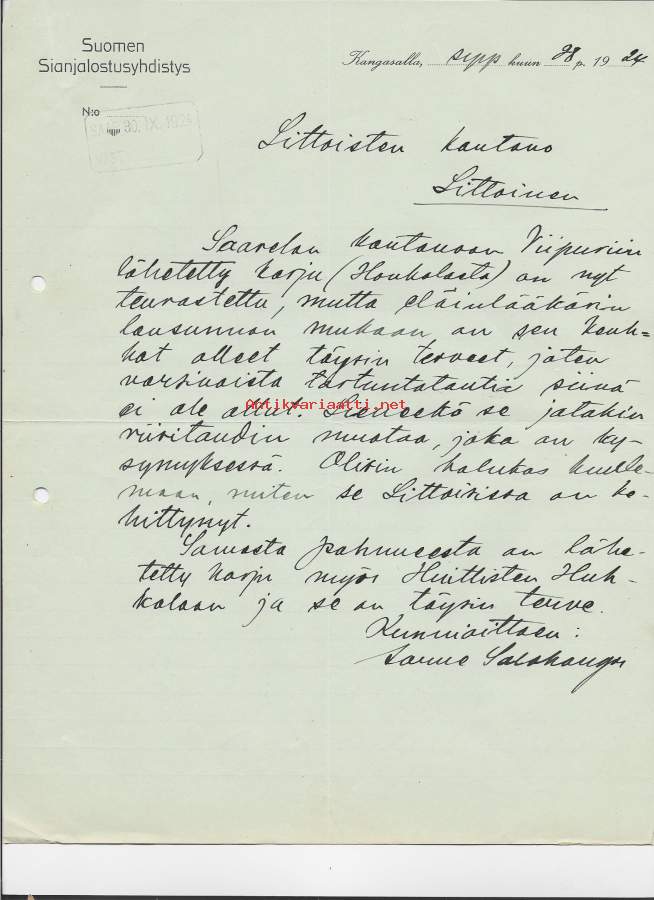 Suomen
Sianjalostusyhdistys
Kangasalla, syys kuun 28 p. 1924
N:o
SAAP. 30. IX. 1924
Littoisten kantano
Littoinen
Saarelan kantanoon Viipuriin
lähetetty karju (Honkolasta) on nyt
teurastettu, mutta eläinlääkärin
lausunnon mukaan on sen keuh=
kot olleet täysin terveet, joten
varsinaista tartuntatautia siinä
ei ole ollut. Lieneekö se jotakin
riisitaudin muotoa, joka on ky-
symyksessä. Olisin halukas kuule-
maan, miten se Littoisissa on ke-
hittynyt.
Samasta pahnueesta on lähe-
tetty karju myös Huittisten Huh-
kolaan ja se on täysin terve.
Kunnioittaen:
antikvariaatti.net